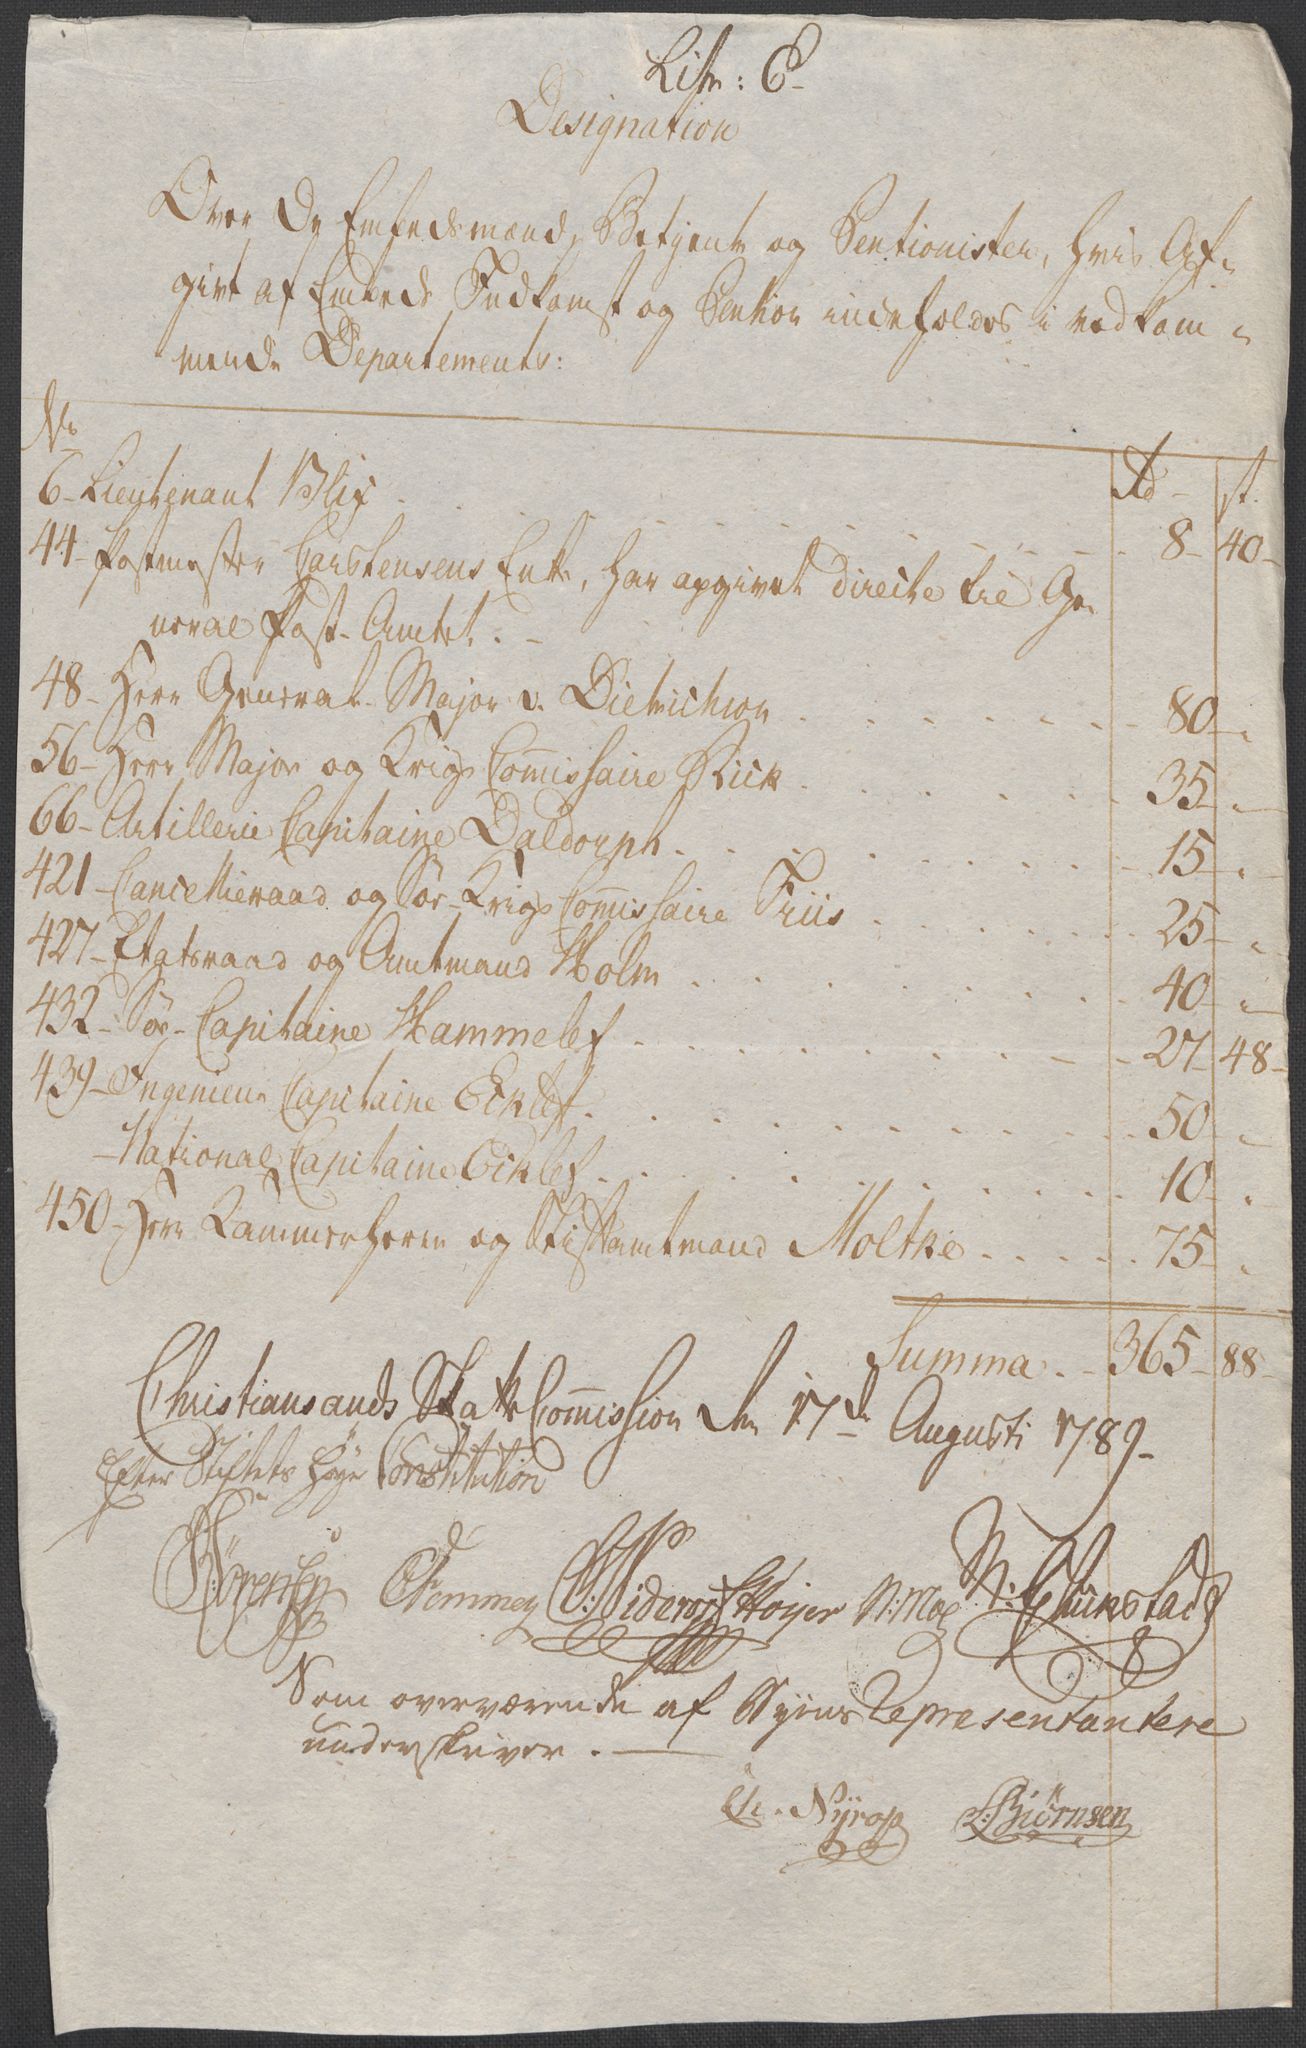 Litr: C
Designation
Over De Embedsmænd, Betjente og Pentionister, hvis Af-
givt af Embeds Indkomst og Pention indeholdes i vedkom-
mende Departements:
No Rd st.
6 - Lieutenant Blix . . . 8 - 40 -
44 - Postmester Carstensens Enke, har afgivet directe til Ge-
neral Post-Amtet . -
48 - Herr General-Major v. Dietrichson . . . 80 - „
56 - Herr Major og Krigs Commissaire Bick . . . 35 - „
66 - Artillerie Capitaine Daldorph . . . 15 - „
421 - Cancellieraad og Søe-Krigs Commissaire Friis . . . 25 - „
427 - Etatsraad og Amtmand Holm . . . 40 - „
432 - Søe-Capitaine Hammelef . . . 27 - 48 -
439 - Ingenieur Capitaine Eiklef . . . 50 - „
- National Capitaine Eiklef . . . 10 - „
450 - Herr Kammerherre og Stiftamtmand Moltke . . . 75 - „
Summa . - 365 - 88 -
Christiansands Skatte Commission den 17de Augusti 1789 -
Efter Stiftets høye Constitution
Sørensen Clemmey Høyer N: Moe
Som overværende af Byens Representantere
underskriver . —
Chr. Nÿrop L: Biørnsen